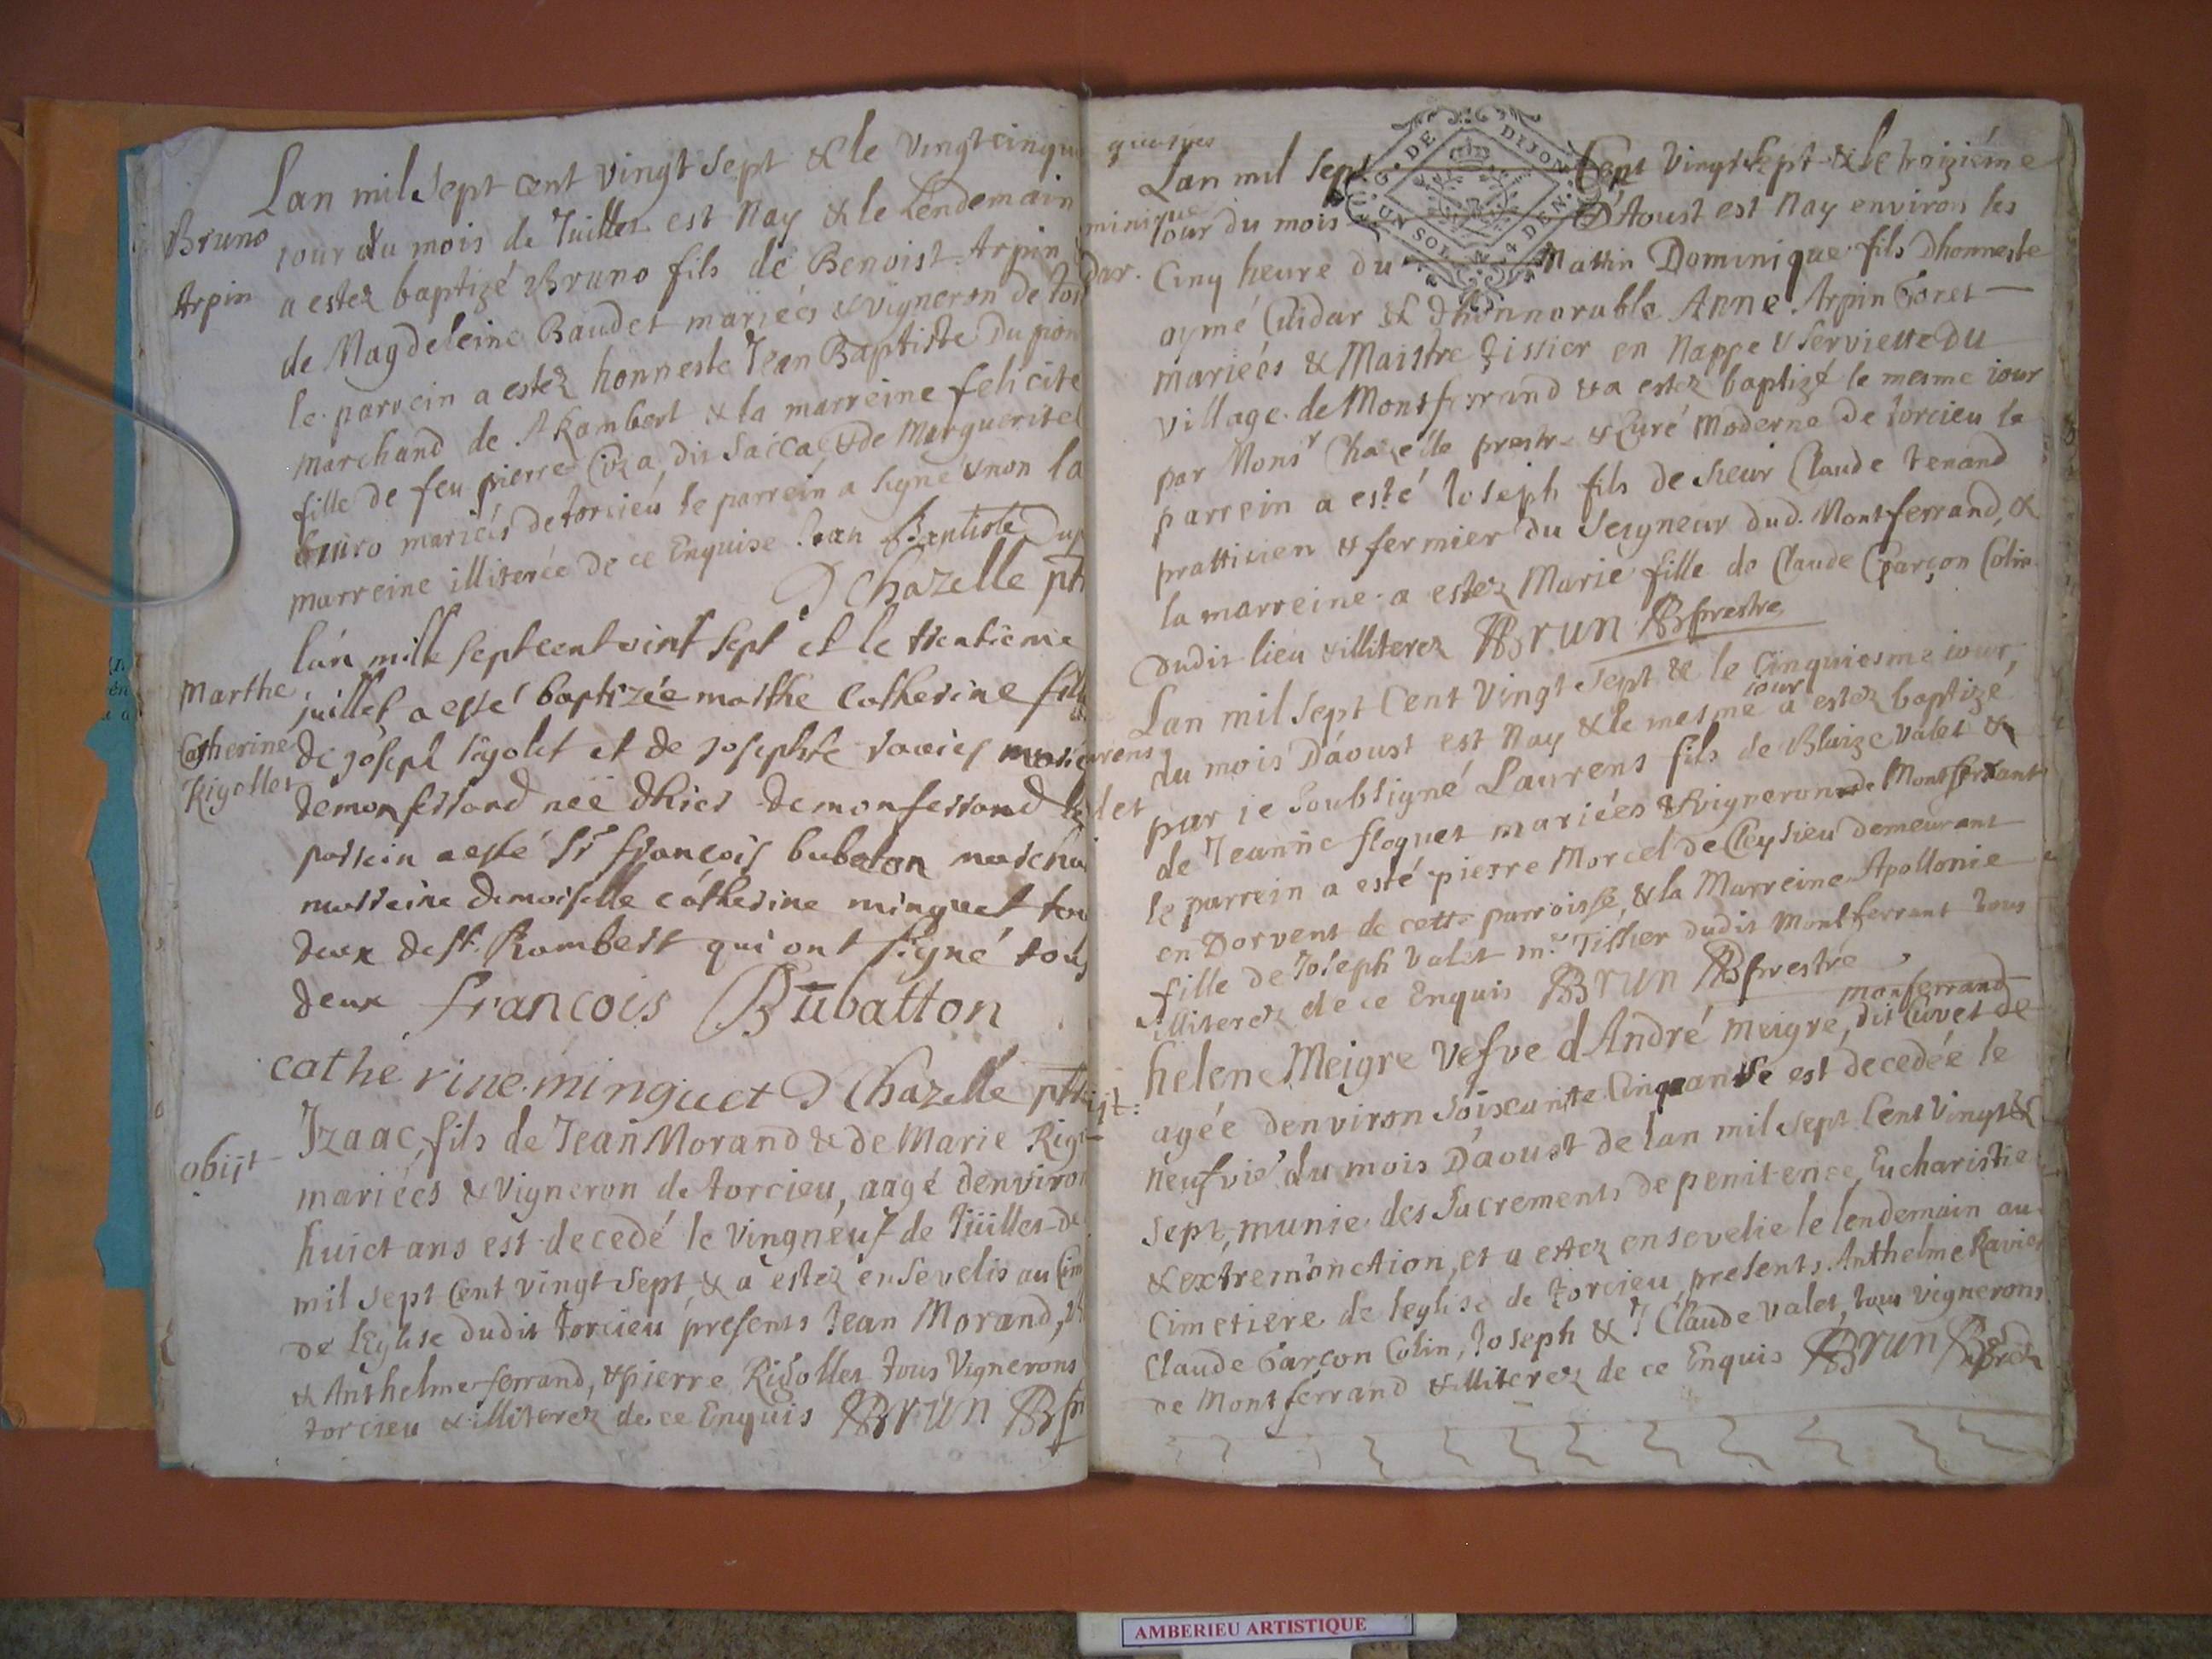 Bruno
Arpin
Lan mil Sept cent vingt Sept & le vingt cinqu
iour du mois de Juillet est Nay & le Lendemain
a estez baptizé Bruno fils de Benoist Arpin
de Magdeleine Baudet mariées & vigneron de tor
le parrein a estez honneste Jean Baptiste Dupon
marchand de Rambert & la marreine felicite
fille de feu pierre dit & de Marguerite
mariés de torcieu le parrein a signé & non la
marreine illiterée de ce Enquise Jean Baptiste Dup
D Chazelle ptr
Marthe
Catherine
Rigollet
lán mille septcent vint sept et le trentieme
juillet a esté baptizée marthe Catherine fille
de joseph rigolet et de josephte ravier marie
demonferrand neë dhier demonferrand le
parrein a esté Sr françois bubaton marchan
marreine demoiselle catherine minguet tou
deux de St Rambert qui ont signé tous
deux francois Bubatton
catherine minguet D Chazelle ptr
obijt
Izaac fils de Jean Morand & de Marie Rig
mariées & vigneron de torcieu, aagé denviron
huict ans est decedé le vingneuf de Jüillet de
mil Sept Cent vingt Sept & a estez ensevelis au Cim
de lEglise dudit torcieu presents Jean Morand,
& Anthelme ferrand, & pierre Rigollet tous Vignerons
torcieu & illiterez de ce Enquis Brun
DE DIJON
UN SOL 4 DEN.
minique
dar.
Lan mil Sept Cent Vingt Sept & le troiziéme
iour du mois D'Aoust est Nay environ les
Cinq heure du Mattin Dominique fils dhonneste
aymé Cuidar & dhonnorable Anne Arpin Goret
mariées & Maistre tissier en Nappe & Serviette du
village de Montferrand & a estez baptizé le mesme iour
par Monsr Chazelle prestre & Curé Moderne de torcieu le
parrein a esté Joseph fils de Sieur Claude tenand
pratticien & fermier du Seigneur dud. Montferrand, &
la marreine a estez Marie fille de Claude Garçon Colin
dudit lieu & illiterez Brun prestre
urens
let
Lan mil Sept Cent Vingt Sept & le Cinquiesme iour,
du mois Daoust est Nay & le mesme iour a estez baptizé
par ie Soubsigné Laurens fils de Blaize valet &
de Jeanne floquet mariées & vigneron de Montferrant
le parrein a esté pierre Morcel de Cleysieu demeurant
en Dorvent de cette parroisse, & la Marreine Apollonie
fille de Joseph Valet mr Tissier dudit Montferrant tous
illiterez de ce Enquis Brun prestre
ijt:
helene Meigre Vefve d'André Meigre, dit Cuvet de monferrand
agée denviron Soiscante Cinq ans est decedée le
neufvie du mois Daoust de lan mil Sept Cent Vingt &
Sept, munie des Sacrements de penitence, Eucharistie
& extremonction, et a estez ensevelie le lendemain au
Cimetiere de leglise de torcieu presents Anthelme Ravier
Claude Garçon Colin, Joseph & Claude valet, tous vignerons
de Montferrand & illiterez de ce Enquis Brun
AMBERIEU ARTISTIQUE